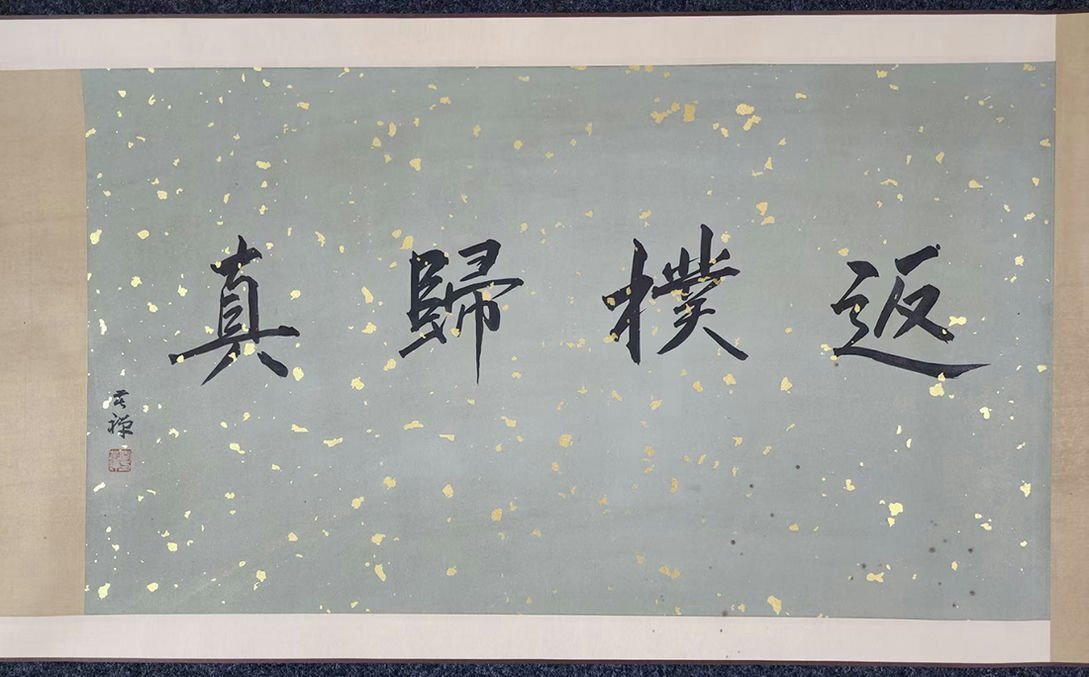 返樸歸真